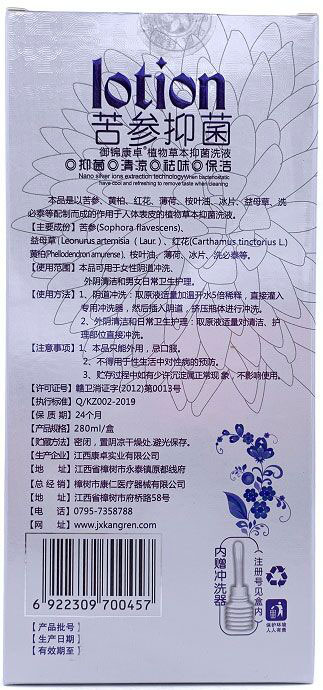 lotion
苦参抑菌
御锦康卓®植物草本抑菌洗液
◎抑菌◎清凉◎祛味◎保洁
Nano silver ions extraction technologywhen bacteriostatic
have cool and refreshing to remove taste when cleaning
本品是以苦参、黄柏、红花、薄荷、桉叶油、冰片、益母草、洗
必泰等配制而成的作用于人体表皮的植物草本抑菌洗液。
【主要成份】苦参(Sophora flavescens)、
益母草(Leonurus artemisia（Laur.）、红花(Carthamus tinctorius L.)
黄柏(Phellodendron amurense)、桉叶油、薄荷、冰片、洗必泰等。
【使用范围】本品可用于女性阴道冲洗、
外阴清洁和男女日常卫生护理。
【使用方法】1、阴道冲洗：取原液适量加温开水5倍稀释，直接灌入
专用冲洗器，然后插入阴道，挤压瓶体进行冲洗。
2、外阴清洁和日常卫生护理：取原液适量对清洁、护
理部位直接冲洗。
【注意事项】1、本品只能外用，忌口服。
2、不得用于性生活中对性病的预防。
3、贮存过程中如有少许沉淀属正常现 象，不影响使用。
【许可证号】赣卫消证字(2012)第0013号
【执行标准】Q/KZ002-2019
【保 质 期】24个月
【产品规格】280ml/盒
【贮藏方法】密闭，置阴凉干燥处.避光保存。
【生产企业】江西康卓实业有限公司
【地 址】江西省樟树市永泰镇原都线府
【总 经 销】樟树市康仁医疗器械有限公司
【地 址】江西省樟树市府桥路58号
【电 话】0795-7358788
【网 址】www.jxkangren.com
6 922309 700457
内赠冲洗器
注册号见盒内
保护环境
人人有责
【产品批号】
【生产日期】
【有效期至】